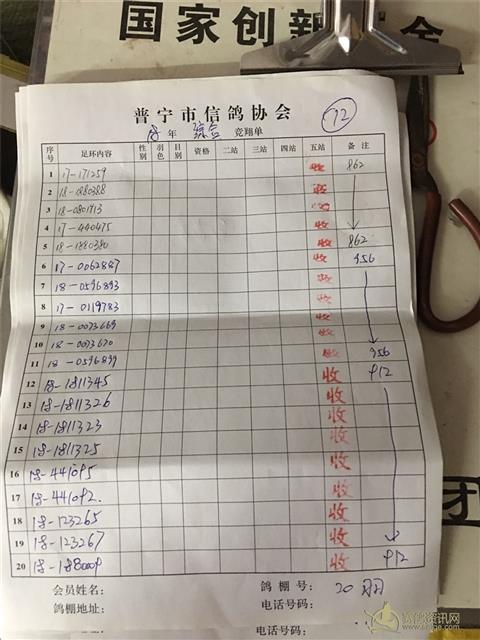 国家创新
普宁市信鸽协会
72
18年 综合 竞翔单
序号 足环内容 性别 羽色 目别 资格 二站 三站 四站 五站 备注
1 17-171259 收 862
2 18-1880388 收
3 18-0801713 收
4 17-440475 收
5 18-1880380 收 862
6 17-0062887 收 956
7 18-0596893 收
8 17-0119783 收
9 18-0073669 收
10 18-0073670 收
11 18-0596899 收 956
12 18-1811345 收 912
13 18-1811326 收
14 18-1811323 收
15 18-1811325 收
16 18-441095 收
17 18-441092 收
18 18-123265 收
19 18-123267 收
20 18-1880009 收 912
会员姓名: 鸽棚号: 20羽
鸽棚地址: 电话号码:
电话号码:
团